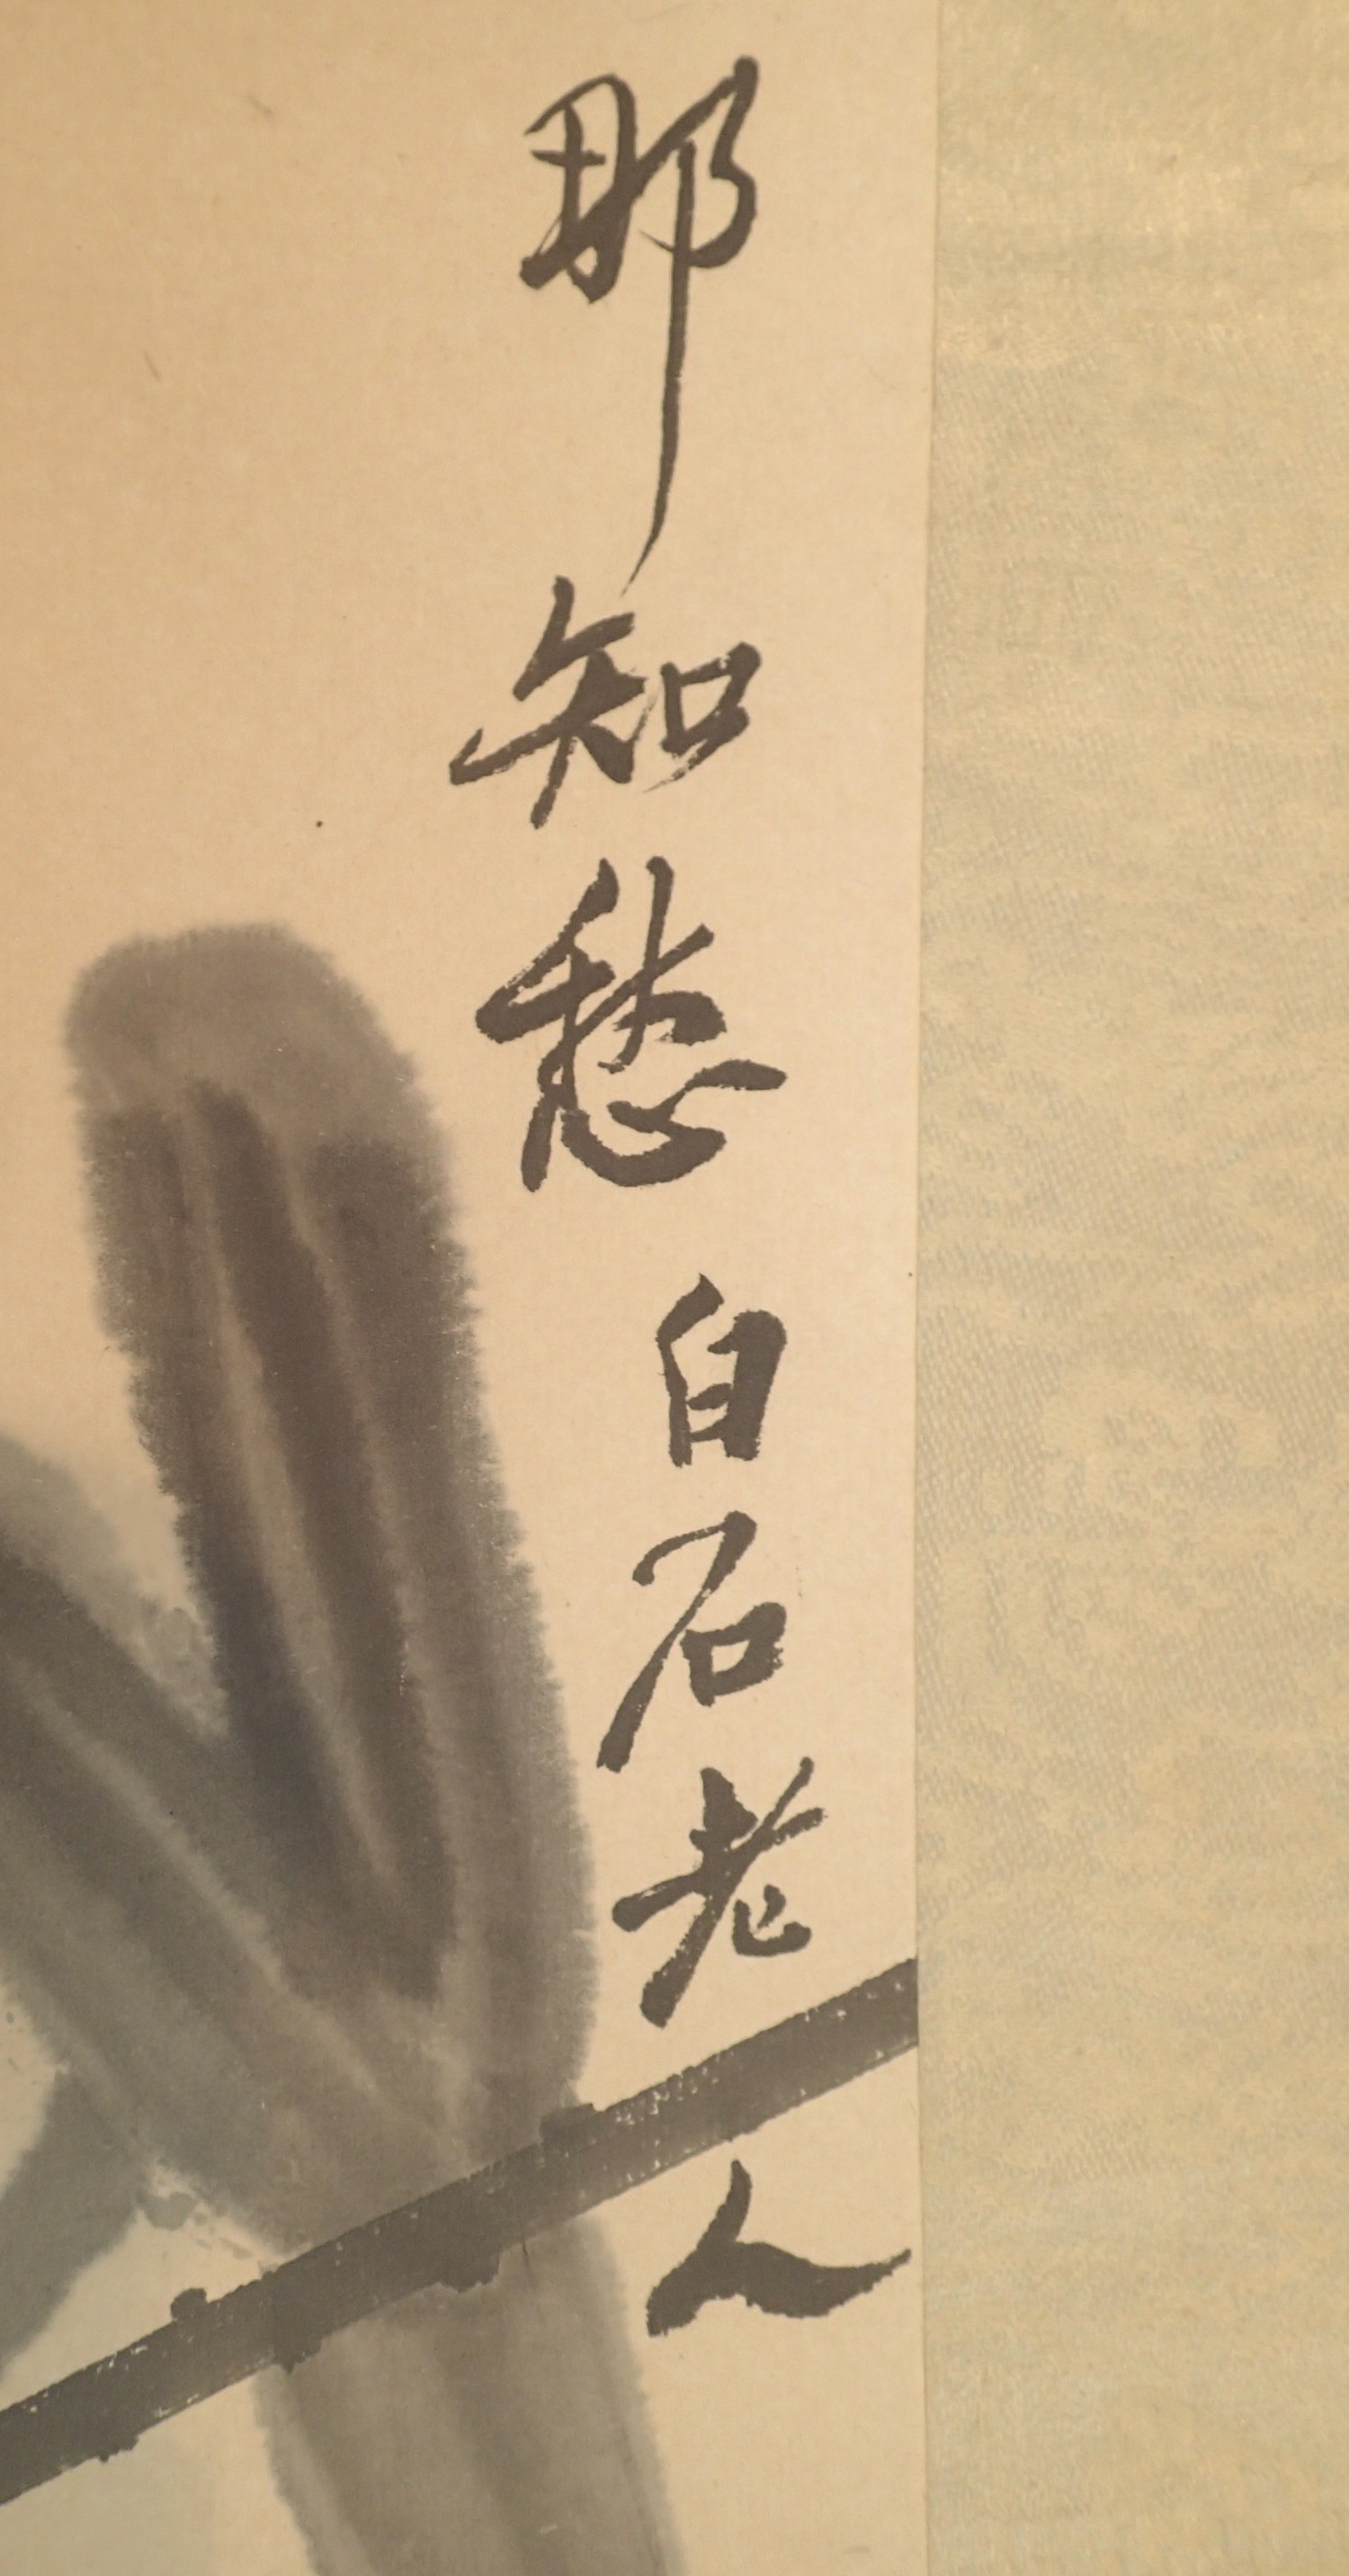 那知愁
白石老人